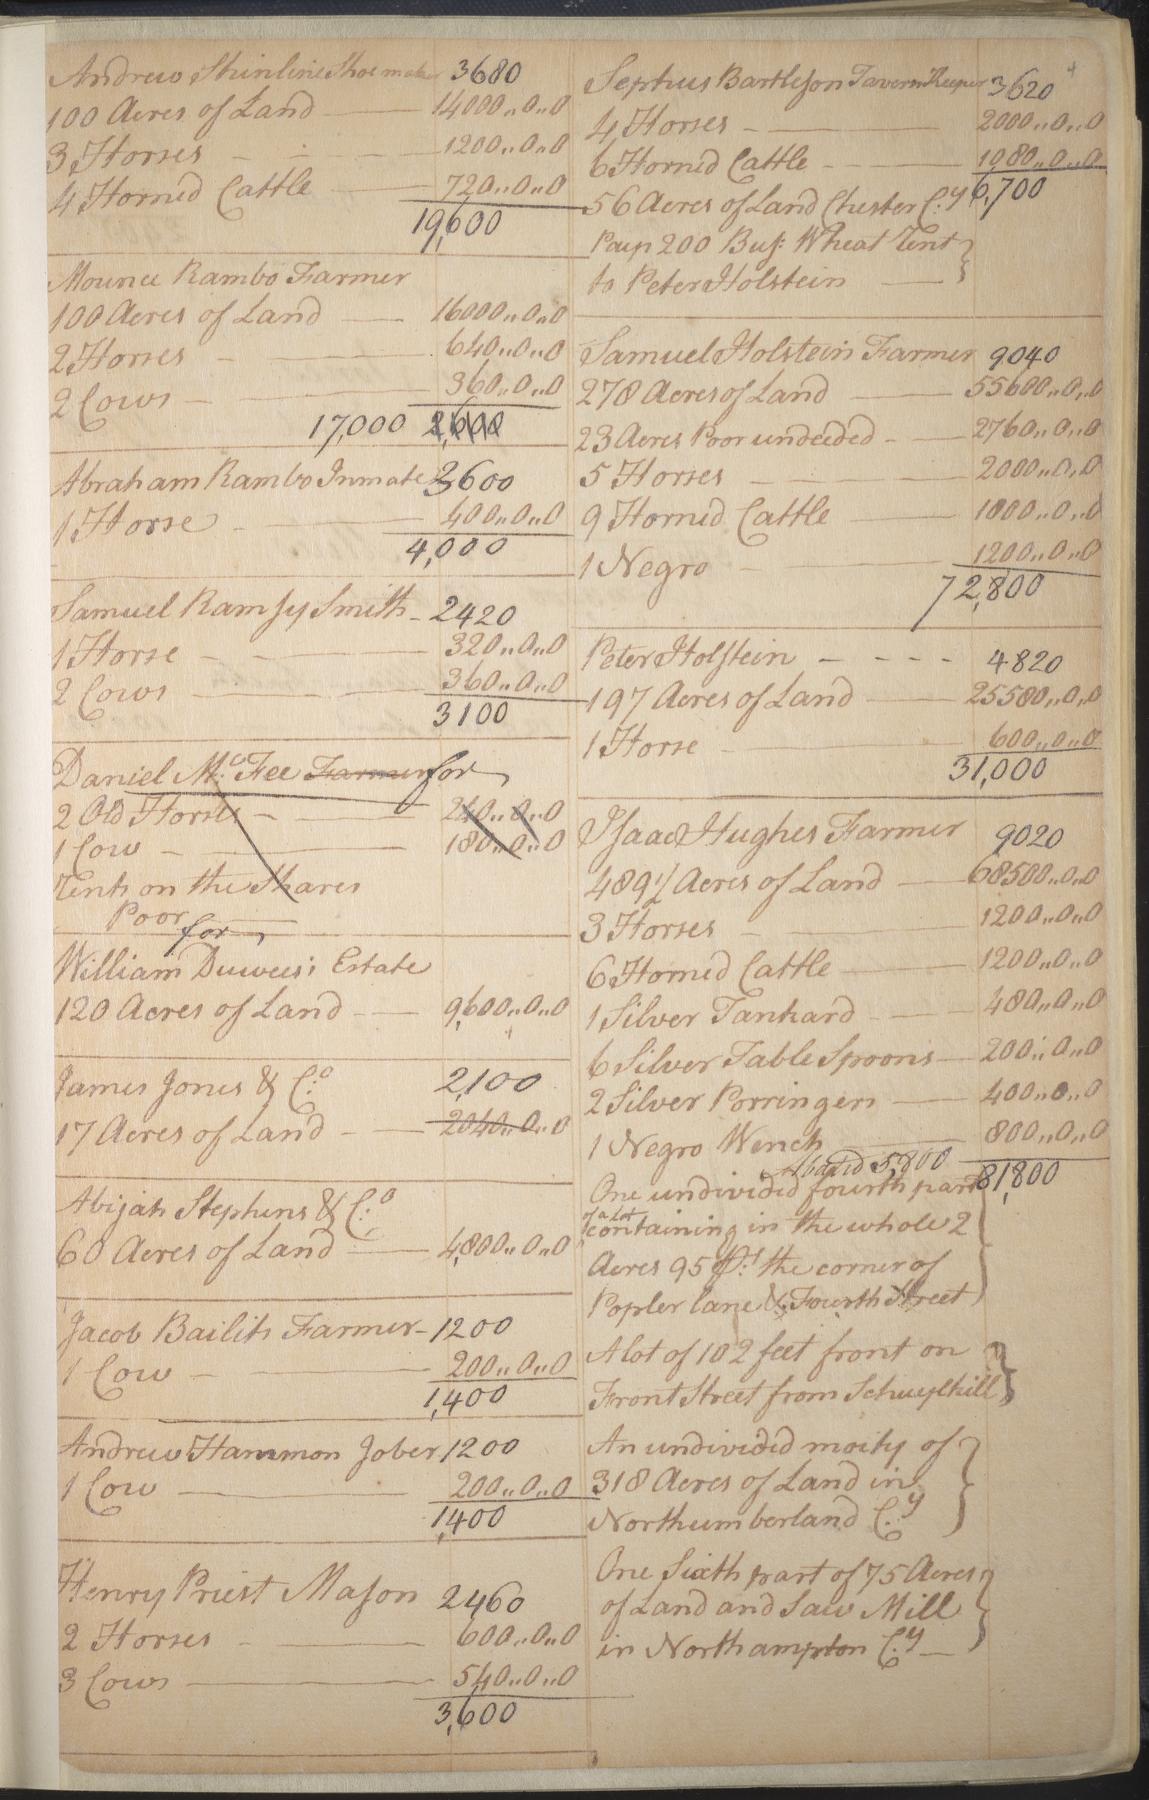 Andrew Shinline Shoemaker 3680
100 Acres of Land 14000,,0,,0
3 Horses 1200,,0,,0
4 Horned Cattle 720,,0,,0
19,600
Mounce Rambo Farmer
100 Acres of Land 16000,,0,,0
2 Horses 640,,0,,0
2 Cows 360,,0,,0
17,000
Abraham Rambo Inmate 3600
1 Horse 400,,0,,0
4,000
Samuel Ramsey Smith 2420
1 Horse 320,,0,,0
2 Cows 360,,0,,0
3100
Daniel Mc:Fee Farmer for
2 Old Horses 240,,0,,0
1 Cow 180,,0,,0
Rents on the Shares
Poor
for
William Duwees's Estate
120 Acres of Land 9,600,,0,,0
James Jones & C:o 2,100
17 Acres of Land 2040,,0,,0
Abijah Stephens & C:o
60 Acres of Land 4,800,,0,,0
Jacob Bailits Farmer 1200
1 Cow 200,,0,,0
1,400
Andrew Hammon Jober 1200
1 Cow 200,,0,,0
1,400
Henry Priest Mason 2460
2 Horses 600,,0,,0
3 Cows 540,,0,,0
3,600
4
Septius Bartleson Tavern Keeper 3620
4 Horses 2000,,0,,0
6 Horned Cattle 1080,,0,,0
56 Acres of Land Chester C:y 6,700
Pays 200 Bus: Wheat Rent
to Peter Holstein
Samuel Holstein Farmer 9040
278 Acres of Land 55600,,0,,0
23 Acres Poor undeeded 2760,,0,,0
5 Horses 2000,,0,,0
9 Horned Cattle 1800,,0,,0
1 Negro 1200,,0,,0
72,800
Peter Holstein 4820
197 Acres of Land 25580,,0,,0
1 Horse 600,,0,,0
31,000
Isaac Hughes Farmer 9020
489½ Acres of Land 68500,,0,,0
3 Horses 1200,,0,,0
6 Horned Cattle 1200,,0,,0
1 Silver Tankard 480,,0,,0
6 Silver Table Spoons 200,,0,,0
2 Silver Porringers 400,,0,,0
1 Negro Wench 800,,0,,0
Abated 5,800 81,800
One undivided fourth part
of a lot
containing in the whole 2
Acres 95 the corner of
Popler lane & Fourth Street
A lot of 102 feet front on
Front Street from Schuylkill
An undivided moity of
318 Acres of Land in
Northumberland C:y
One Sixth part of 75 Acres
of Land and Saw Mill
in Northampton C:y